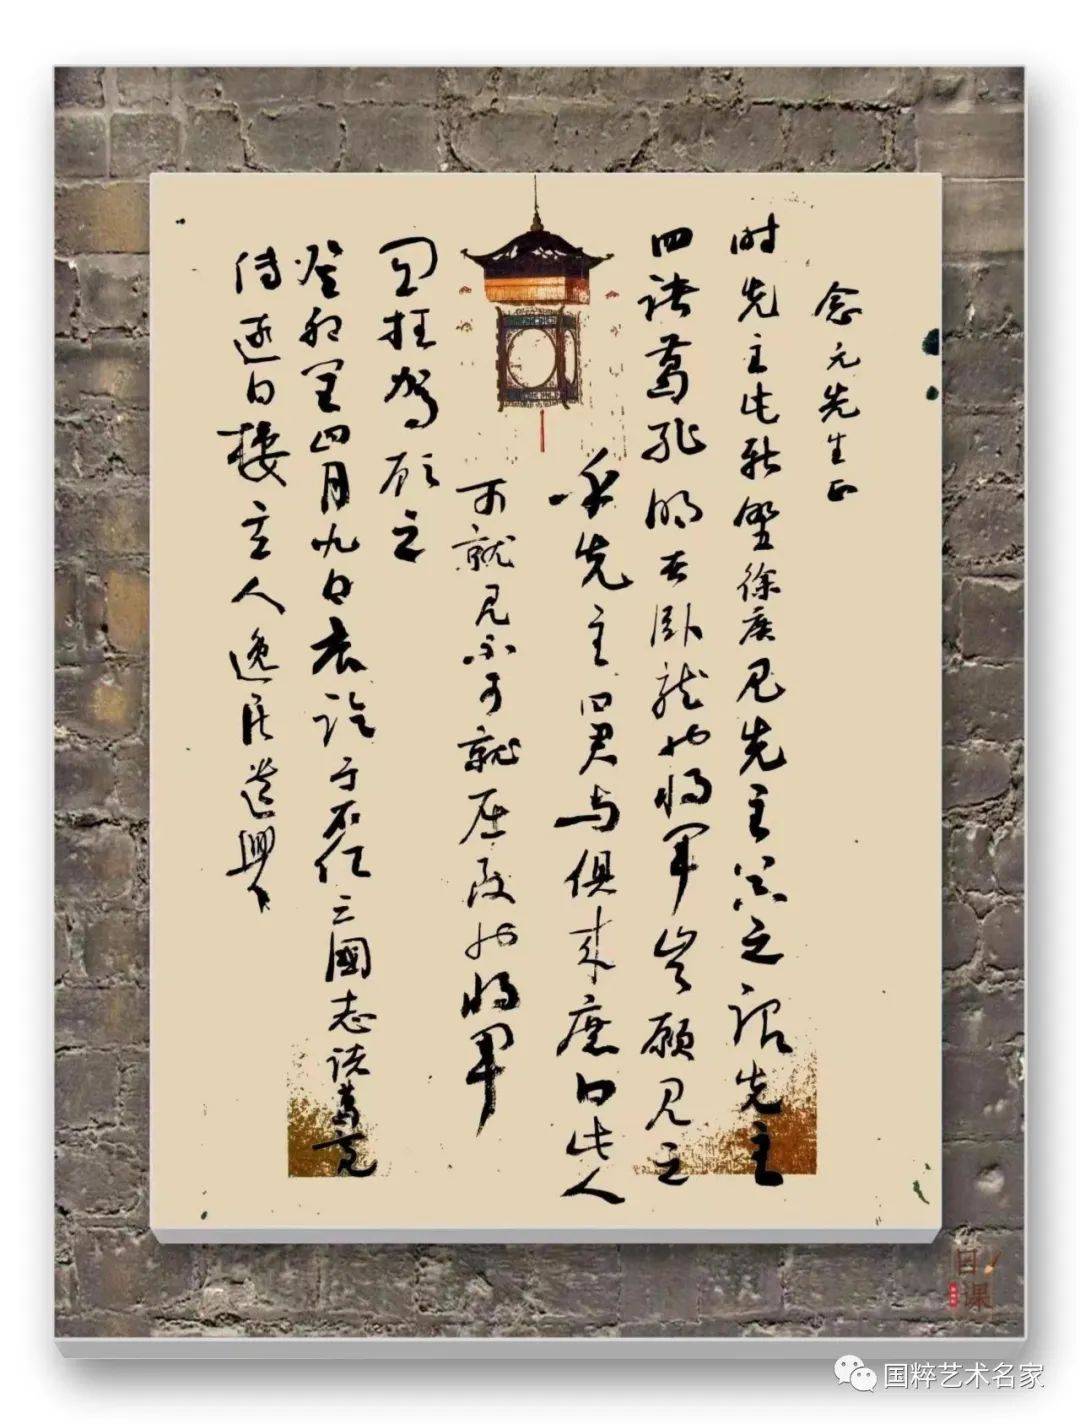 念元先生正
时先主屯新野徐庶见先主器之谓先主
曰诸葛孔明者卧龙也将军岂愿见之
乎先主曰君与俱来庶曰此人
可就见不可就屈致也将军
宜枉驾顾之
癸卯四月九日于三國志诸葛亮
传白楼主人逸遣興
日课
国粹艺术名家